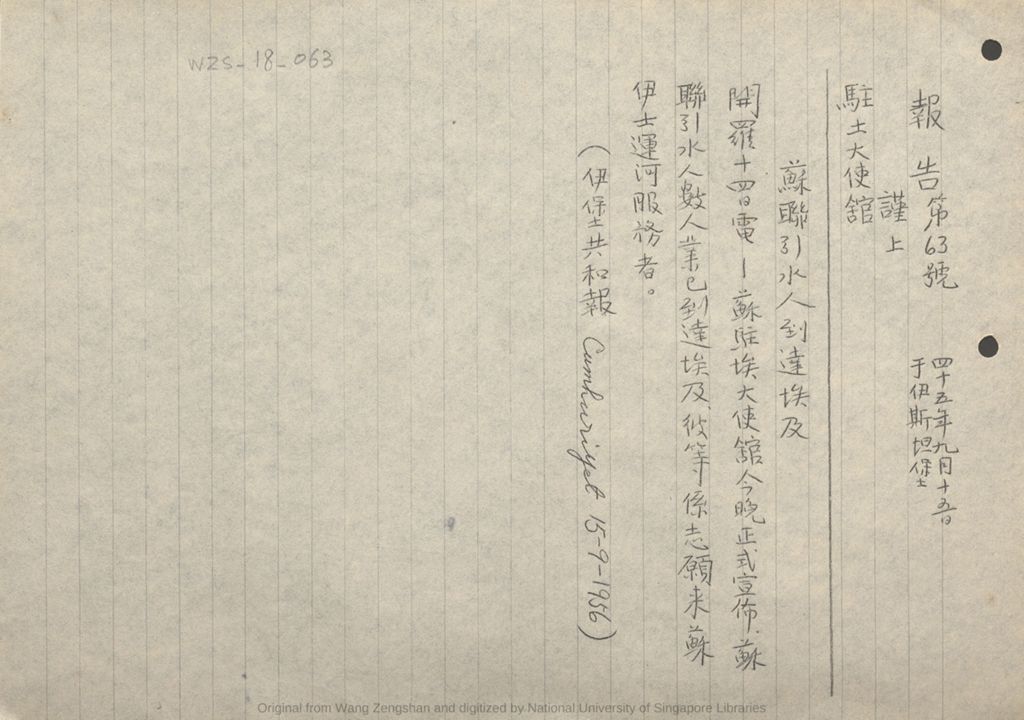 WZS-18-063
報告第63號
四十五年九月十五日
于伊斯坦堡
謹上
駐土大使館
蘇聯引水人到達埃及
開羅十四日電—蘇駐埃大使館今晚正式宣佈,蘇
聯引水人數人業已到達埃及,彼等係志願來蘇
伊士運河服務者。
(伊堡共和報 Cumhuriyet 15-9-1956)
Original from Wang Zengshan and digitized by National University of Singapore Libraries